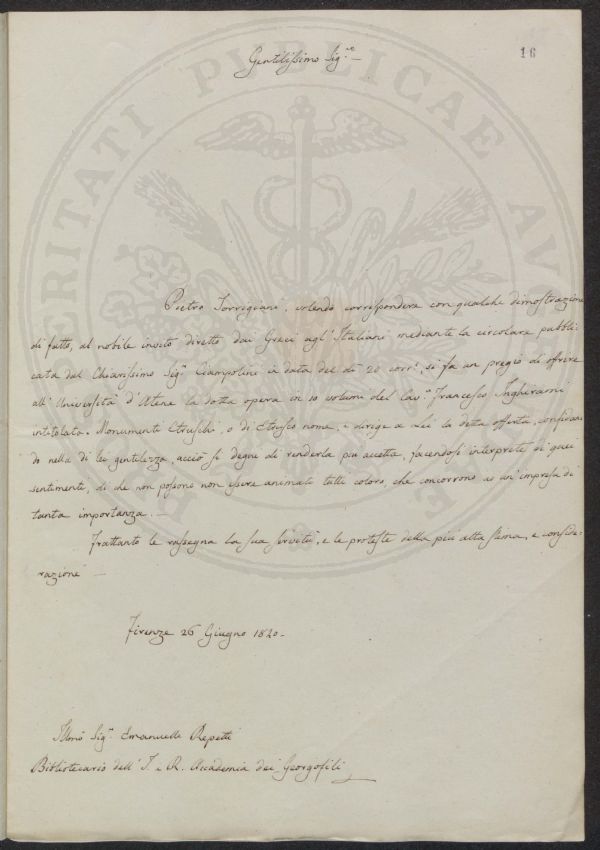 16
Gentilissimo Sig.re
Pietro Torrigiani, volendo corrispondere con qualche dimostrazione
di fatto, al nobile invito diretto dai Greci agl'Italiani mediante la circolare pubbli
cata dal Chiarissimo Sig.r Ciampolini in data del dì 20 corr.e, si fa un pregio di offrire
all'Università d'Atene la dotta opera in 10 volumi del Cav.r Francesco Inghirami
intitolata. Monumenti Etruschi, o di Etrusco nome, e dirige a Lei la detta offerta, confidan
do nella di lei gentilezza, acciò si degni di renderla più accetta, facendosi interprete di quei
sentimenti, di che non possono non essere animati tutti coloro, che concorrono ad un'impresa di
tanta importanza.
Frattanto le rassegna la sua servitù, e le proteste della più alta stima, e conside-
razione
Firenze 26 Giugno 18
Illmo Sig.r Emanuelle Repetti
Bibliotecario dell'I. e R. Accademia dei Georgofili
PUBLICAE